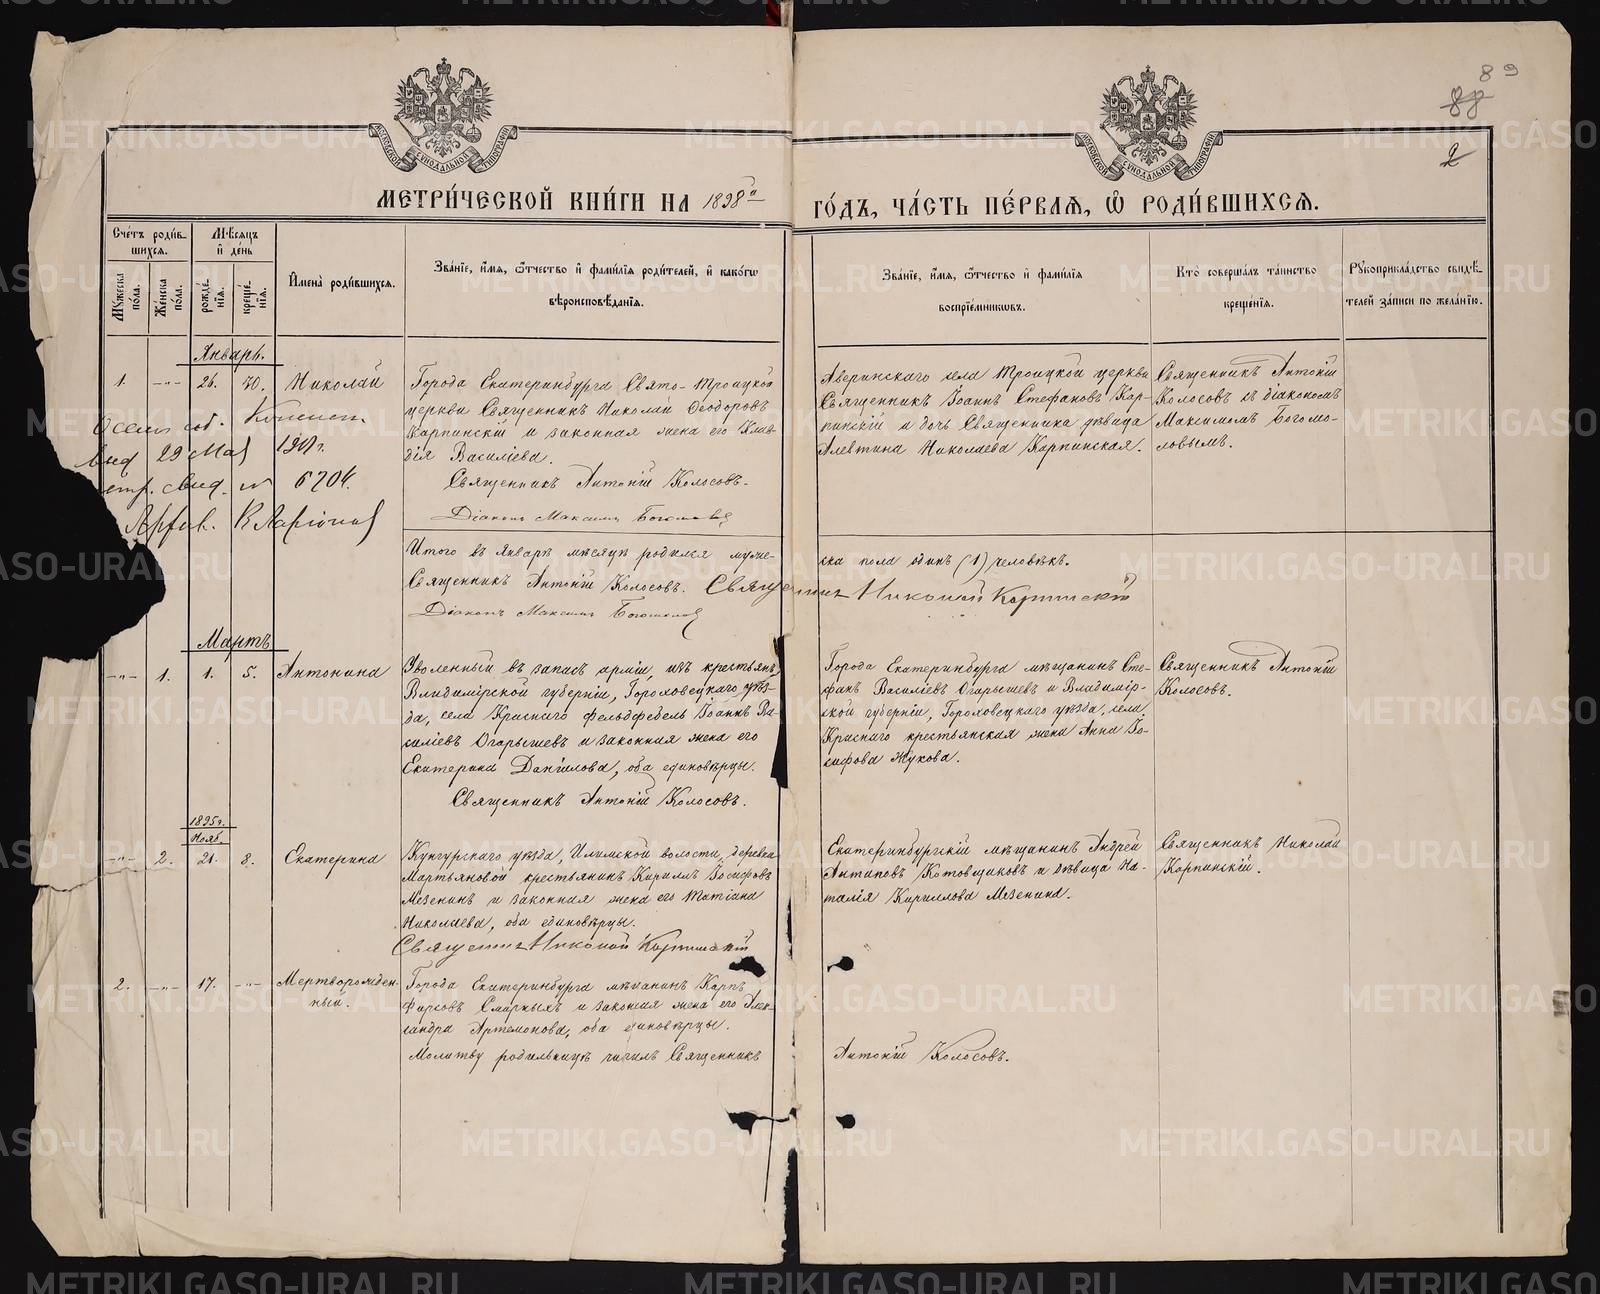 89
88
2
МОСКОВСКОЙ СУНОДАЛЬНОЙ ТИПОГРАФІИ
МОСКОВСКОЙ СУНОДАЛЬНОЙ ТИПОГРАФІИ
МЕТРИ́ЧЕСКОЙ КНИ́ГИ НА 1898й
ГО́ДЪ, ЧА́СТЬ ПЕ́РВАѦ, Ѡ РОДИ́ВШИХСѦ.
Сче́тъ роди́в-
шихся.
Му́жеска по́ла.
Же́нска по́ла.
Мѣ́сяцъ
и҆ де́нь
рожде́нїя.
креще́нїя.
И҆мена̀ роди́вшихся.
Зва́нїе, и҆́мя, ѻ҆́тчество и҆ фами́лїя роди́телей, и҆ како́гѡ
вѣроисповѣ́данїя.
Зва́нїе, и҆́мя, ѻ҆́тчество и҆ фами́лїя
воспрїе́мникѡвъ.
Кто̀ соверша́лъ та́инство
креще́нїя.
Рꙋкоприкла́дство свидѣ́-
телей за́писи по жела́нїю.
Январь.
1. -"- 26. 30. Николай
Города Екатеринбурга Свято-Троицкой
церкви Священникъ Николай Ѳеодоровъ
Карпинскій и законная жена его Клав-
дія Василіева.
Священникъ Антоній Колосовъ.
Діаконъ Максимъ Богомоловъ
Аверинскаго села Троицкой церкви
Священникъ Іоаннъ Стефановъ Кар-
пинскій и дочь Священника дѣвица
Алевтина Николаева Карпинская.
Священникъ Антоній
Колосовъ съ діакономъ
Максимомъ Богомо-
ловымъ.
29 Мая
6704
Итого въ январѣ мѣсяцѣ родился муже-
ска пола одинъ (1) человѣкъ.
Священникъ Антоній Колосовъ. Священникъ Николай Карпинскій
Діаконъ Максимъ Богомоловъ
Мартъ
-"- 1. 1. 5. Антонина
Уволенный въ запасъ арміи, изъ крестьянъ
Владимірской губерніи, Гороховецкаго уѣз-
да, села Краснаго фельдфебель Іоаннъ Ва-
силіевъ Огарышевъ и законная жена его
Екатерина Даніилова, оба единовѣрцы.
Священникъ Антоній Колосовъ.
Города Екатеринбурга мѣщанинъ Сте-
фанъ Василіевъ Огарышевъ и Владимір-
ской губерніи, Гороховецкаго уѣзда, села
Краснаго крестьянская жена Анна Іо-
сифова Жукова.
Священникъ Антоній
Колосовъ.
1895г.
Нояб.
-"- 2. 21. 8. Екатерина
Кунгурскаго уѣзда, Илимской волости, деревни
Мартьяновой крестьянинъ Кириллъ Іосифовъ
Мезенинъ и законная жена его Татіана
Николаева, оба единовѣрцы.
Священникъ Николай Карпинскій
Екатеринбургскій мѣщанинъ Андрей
Антиповъ Котовщиковъ и дѣвица На-
талія Кириллова Мезенина.
Священникъ Николай
Карпинскій.
2. -"- 17. -"- Мертворожден-
ный.
Города Екатеринбурга мѣщанинъ Карпъ
Фирсовъ Смарныхъ и законная жена его Алек-
сандра Артемонова, оба единовѣрцы.
Молитву родильницѣ читалъ Священникъ
Антоній Колосовъ.
METRIKI.GASO-URAL.RU